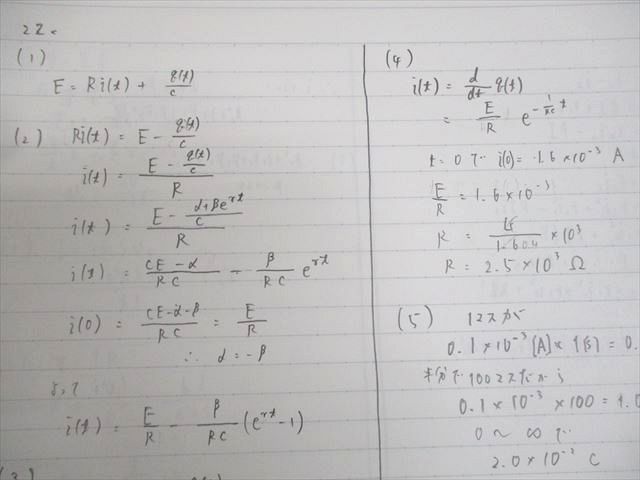 22.
(1)
E = Ri(t) + q(t)/C
(2) Ri(t) = E - q(t)/C
i(t) = (E - q(t)/C)/R
i(t) = (E - (α+βe^{rt})/C)/R
i(t) = (CE-α)/RC - β/RC e^{rt}
i(0) = (CE-α-β)/RC = E/R
∴ α = -β
よって
i(t) = E/R - β/RC (e^{rt} - 1)
(3)
(4)
i(t) = d/dt q(t)
= E/R e^{-1/RC t}
t = 0 で i(0) = 1.6×10^{-3} A
E/R = 1.6×10^{-3}
R = ×10^3
R = 2.5×10^3 Ω
(5) 1マスが
0.1×10^{-3} [A] × 1[s] = 0.
100マスだから
0.1×10^{-3} × 100 = 1.0
0 ~ ∞ で
2.0×10^{-2} C